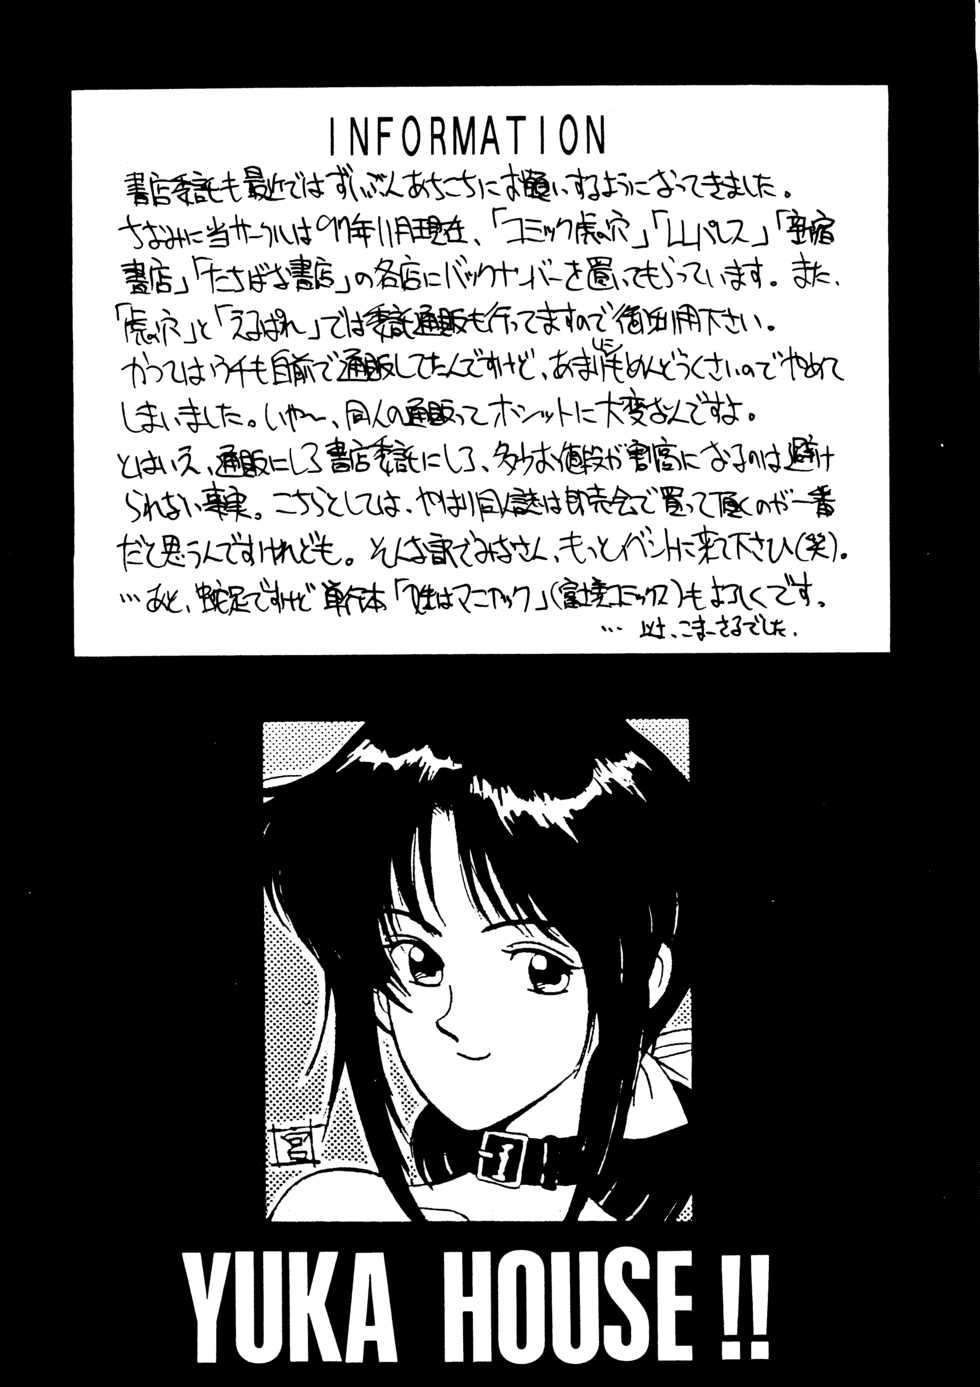 INFORMATION
書店委託も最近ではずいぶんあちこちにお願いするようになってきました。
ちなみに当サークルは97年11月現在、「コミック虎の穴」「LLパレス」「亜宿
書店」「たちばな書店」の各店にバックナンバーを置いてもらっています。また、
「虎の穴」と「えるぱれ」では委託通販も行ってますので御利用下さい。
かつてはウチも自前で通販してたんですけど、あまりにもめんどうくさいのでやめて
しまいました。いや〜、同人の通販ってホシットに大変なんですよ。
とはいえ、通販にしろ書店委託にしろ、多少お値段が割高になるのは避け
られない事実。こちらとしては、やはり同人誌は即売会で買って頂くのが一番
だと思うんですけれども。そんな訳でみなさん、もっとイベントに来て下さひ(笑)。
…あと、蛇足ですけど単行本「はマニアック」(富士美コミックス)もよろしくです。
… 以上、こまーさるでした.
宮
YUKA HOUSE!!